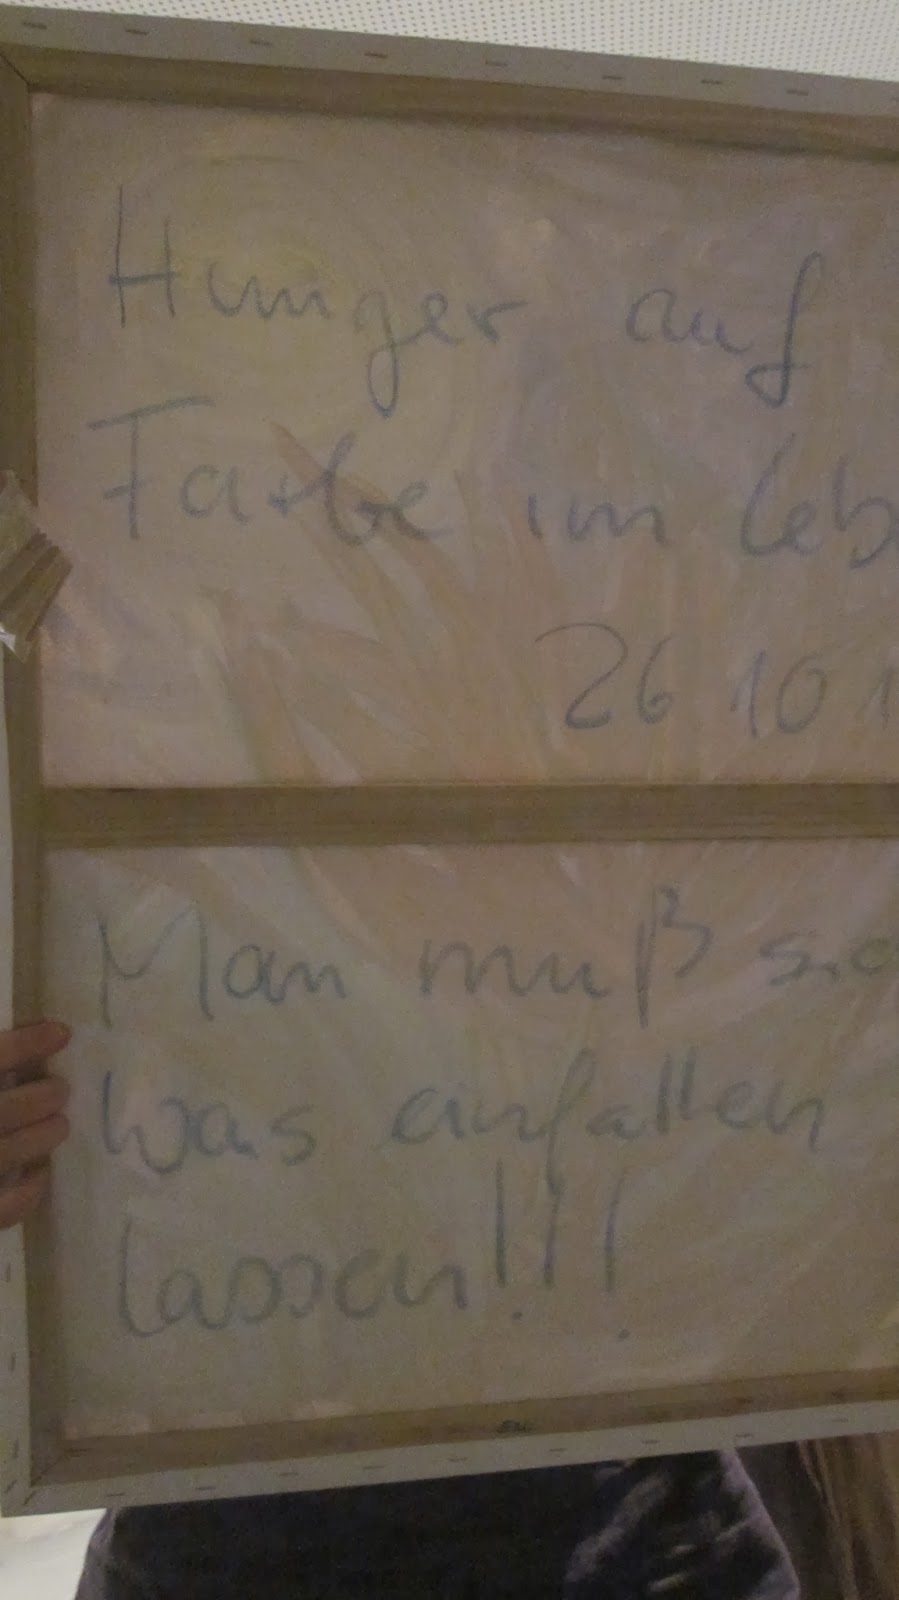 Hunger auf
Farbe im Leb
26 10 1
Man muß sic
was einfallen
lassen!!!